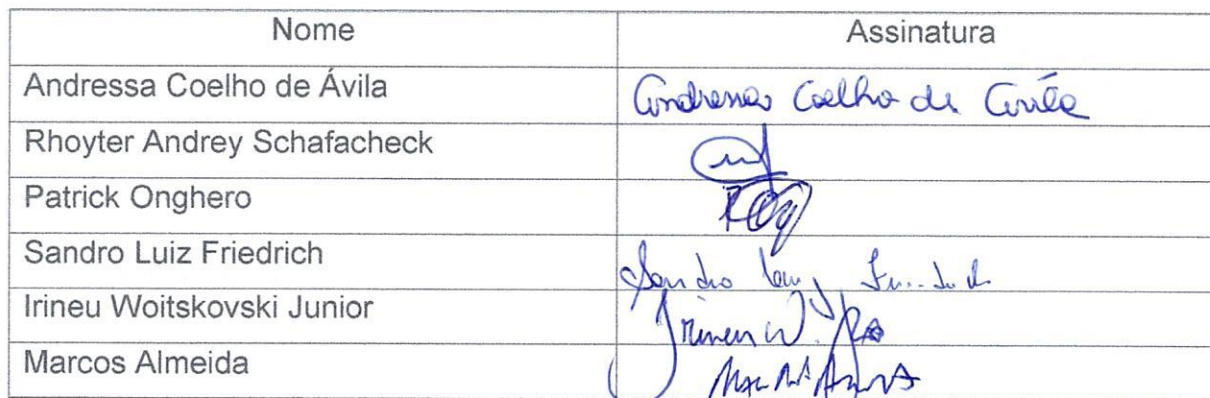 Nome Assinatura
Andressa Coelho de Ávila Andressa Coelho de Ávila
Rhoyter Andrey Schafacheck
Patrick Onghero
Sandro Luiz Friedrich Sandro Luiz
Irineu Woitskovski Junior Irineu W.
Marcos Almeida